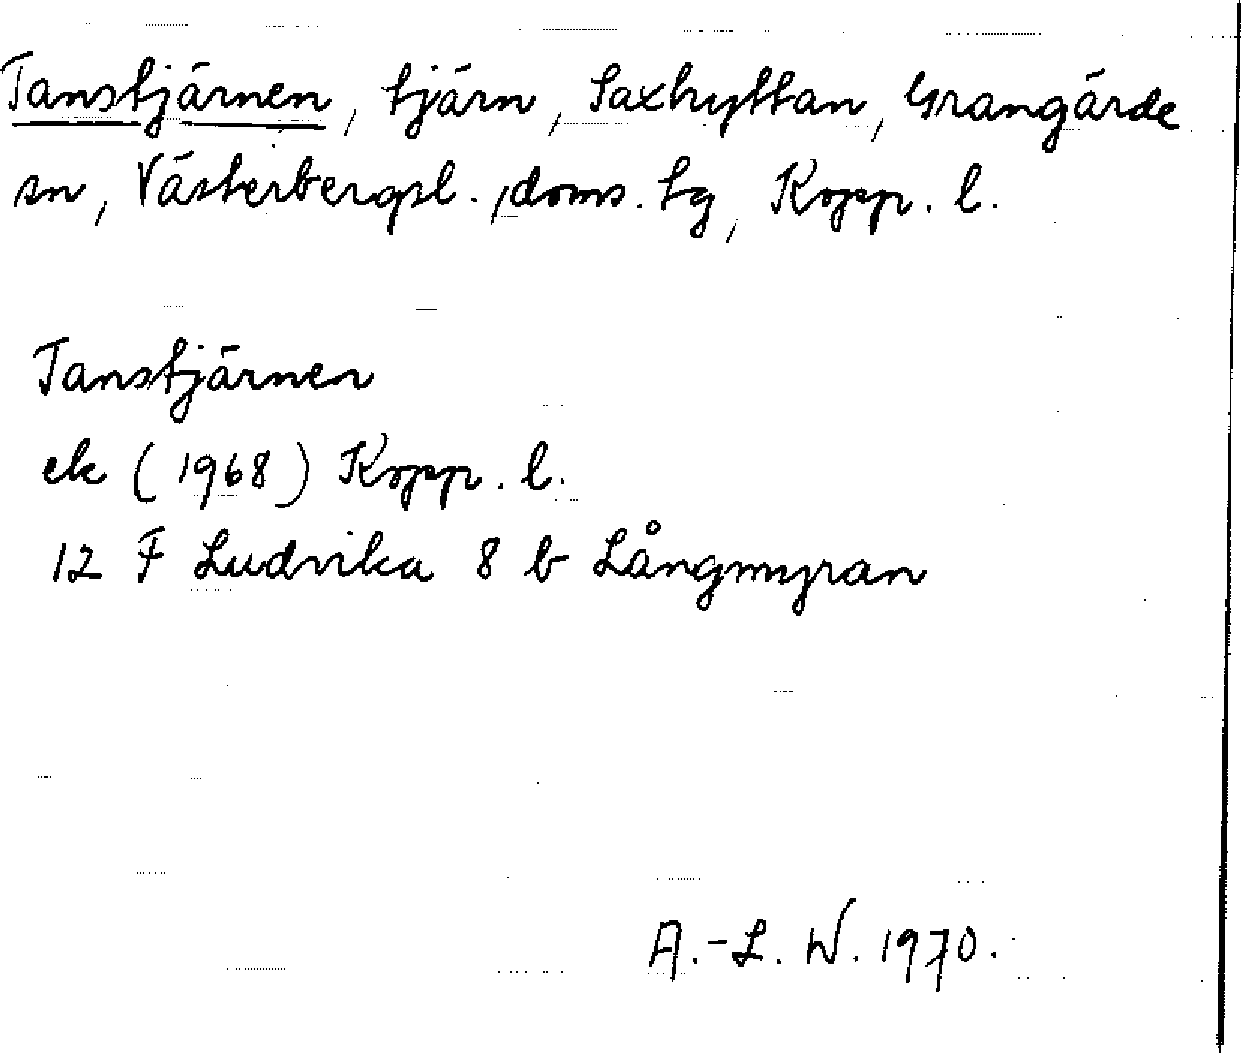 Tanstjärnen, tjärn, Saxhyttan, Grangärde
sn, Västerbergsl. doms. tg, Kopp. l.
Tanstjärnen
ek (1968) Kopp. l.
12 F Ludvika 8 b Långmyran
A.-L. W. 1970.